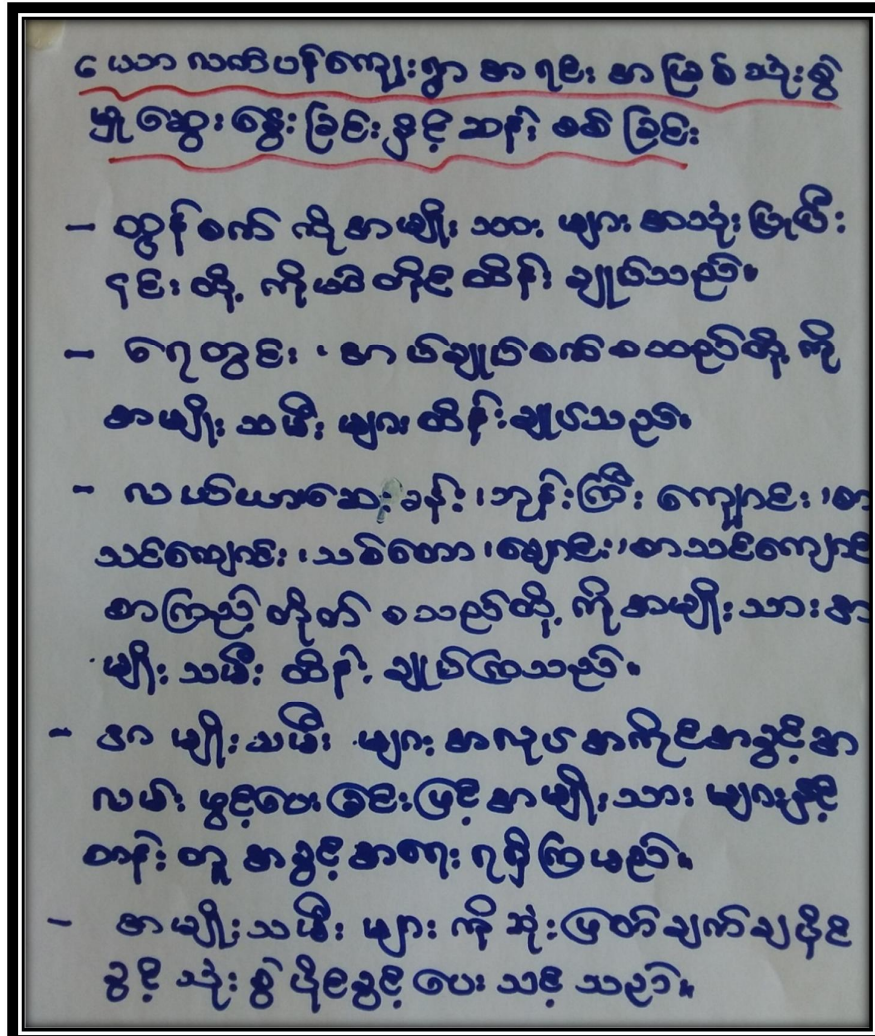 ယောလက်ပန်ကျေးရွာ အရင်းအမြစ်သုံးစွဲ
မှုဆွေးနွေးခြင်းနှင့်ဆန်းစစ်ခြင်း
- ထွန်စက်ကိုအမျိုးသားများအသုံးပြုပြီး
၎င်းတို့ကိုယ်တိုင်ထိန်းချုပ်သည်။
- ရေတွင်း၊အပ်ချုပ်စက်စသည်တို့ကို
အမျိုးသမီးများထိန်းချုပ်သည်။
- လယ်ယာဆေးခန်း၊ဘုန်းကြီးကျောင်း၊စာ
သင်ကျောင်း၊သစ်တော၊ချောင်း၊စာသင်ကျောင်း
စာကြည့်တိုက်စသည်တို့ကိုအမျိုးသားအ
မျိုးသမီးထိန်းချုပ်ကြသည်။
- အမျိုးသမီးများအလုပ်အကိုင်အခွင့်အ
လမ်းဖွင့်ပေးခြင်းဖြင့်အမျိုးသားများနှင့်
တန်းတူအခွင့်အရေးရရှိကြမည်။
- အမျိုးသမီးများကိုဆုံးဖြတ်ချက်ချပိုင်
ခွင့်သုံးစွဲပိုင်ခွင့်ပေးသင့်သည်။